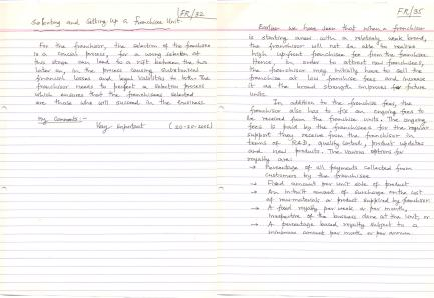 FR/32
Selecting and Setting up a franchise Unit
For the franchisor, the selection of the franchisee
is a crucial process, for a wrong selection at
this stage can lead to a rift between the two
later on, in the process causing substantial
financial losses and legal liabilities to both. The
franchisor needs to perfect a selection process
which ensures that the franchisees selected
are those who will succeed in the business.
My Comments :-
Very important
FR/35
Earlier we have seen that when a franchisor
is starting anew with a relatively weak brand,
the franchisor will not be able to realise
high upfront franchise fee from the franchisee.
Hence, in order to attract new franchisees,
the franchisor may initially have to sell the
franchise at low franchise fees and increase
it as the brand strength improves for future
units.
In addition to the franchise fees, the
franchisor also has to fix an ongoing fees to
be received from the franchise units. The ongoing
fees is paid by the franchisees for the regular
support they receive from the franchisor in
terms of R&D, quality control, product updates
and new products. The various options for
royalty are:
→ Percentage of all payments collected from
customers by the franchisee
→ Fixed amount per unit sale of product
→ An amount of surcharge on the cost
of raw material or product supplied by franchisor
→ A fixed royalty per week or per month,
irrespective of the business done at the unit, or
→ A percentage based royalty subject to a
minimum amount per month or per annum